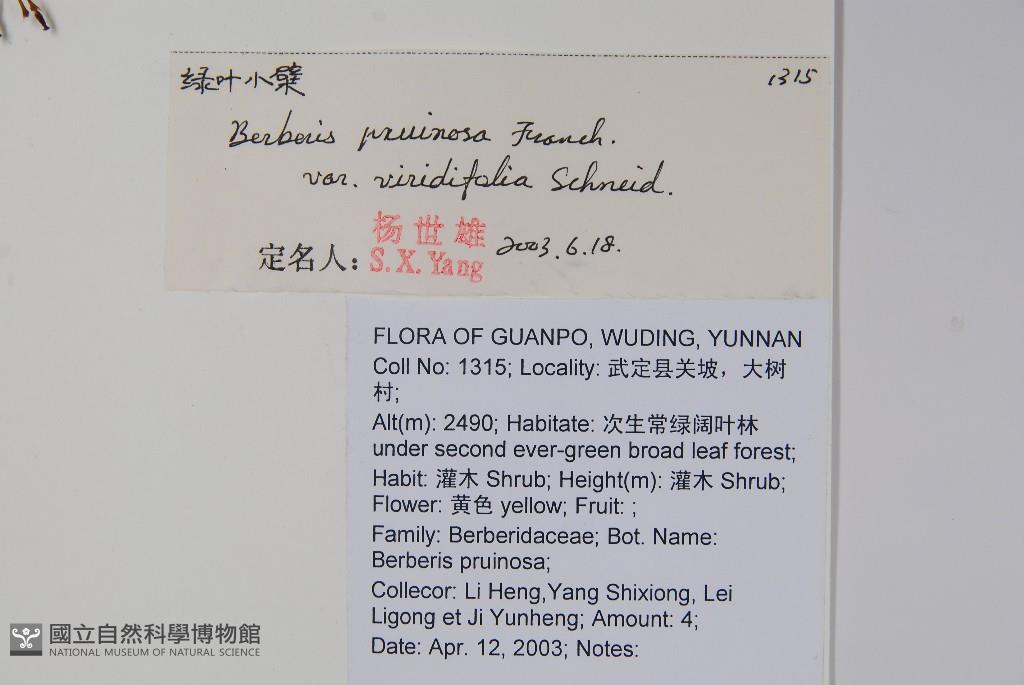 绿叶小檗 1315
Berberis pruinosa Franch.
var. viridifolia Schneid.
杨世雄
定名人: S.X.Yang 2003.6.18.
FLORA OF GUANPO, WUDING, YUNNAN
Coll No: 1315; Locality: 武定县关坡，大树
村;
Alt(m): 2490; Habitate: 次生常绿阔叶林
under second ever-green broad leaf forest;
Habit: 灌木 Shrub; Height(m): 灌木 Shrub;
Flower: 黄色 yellow; Fruit: ;
Family: Berberidaceae; Bot. Name:
Berberis pruinosa;
Collecor: Li Heng,Yang Shixiong, Lei
Ligong et Ji Yunheng; Amount: 4;
Date: Apr. 12, 2003; Notes:
國立自然科學博物館
NATIONAL MUSEUM OF NATURAL SCIENCE